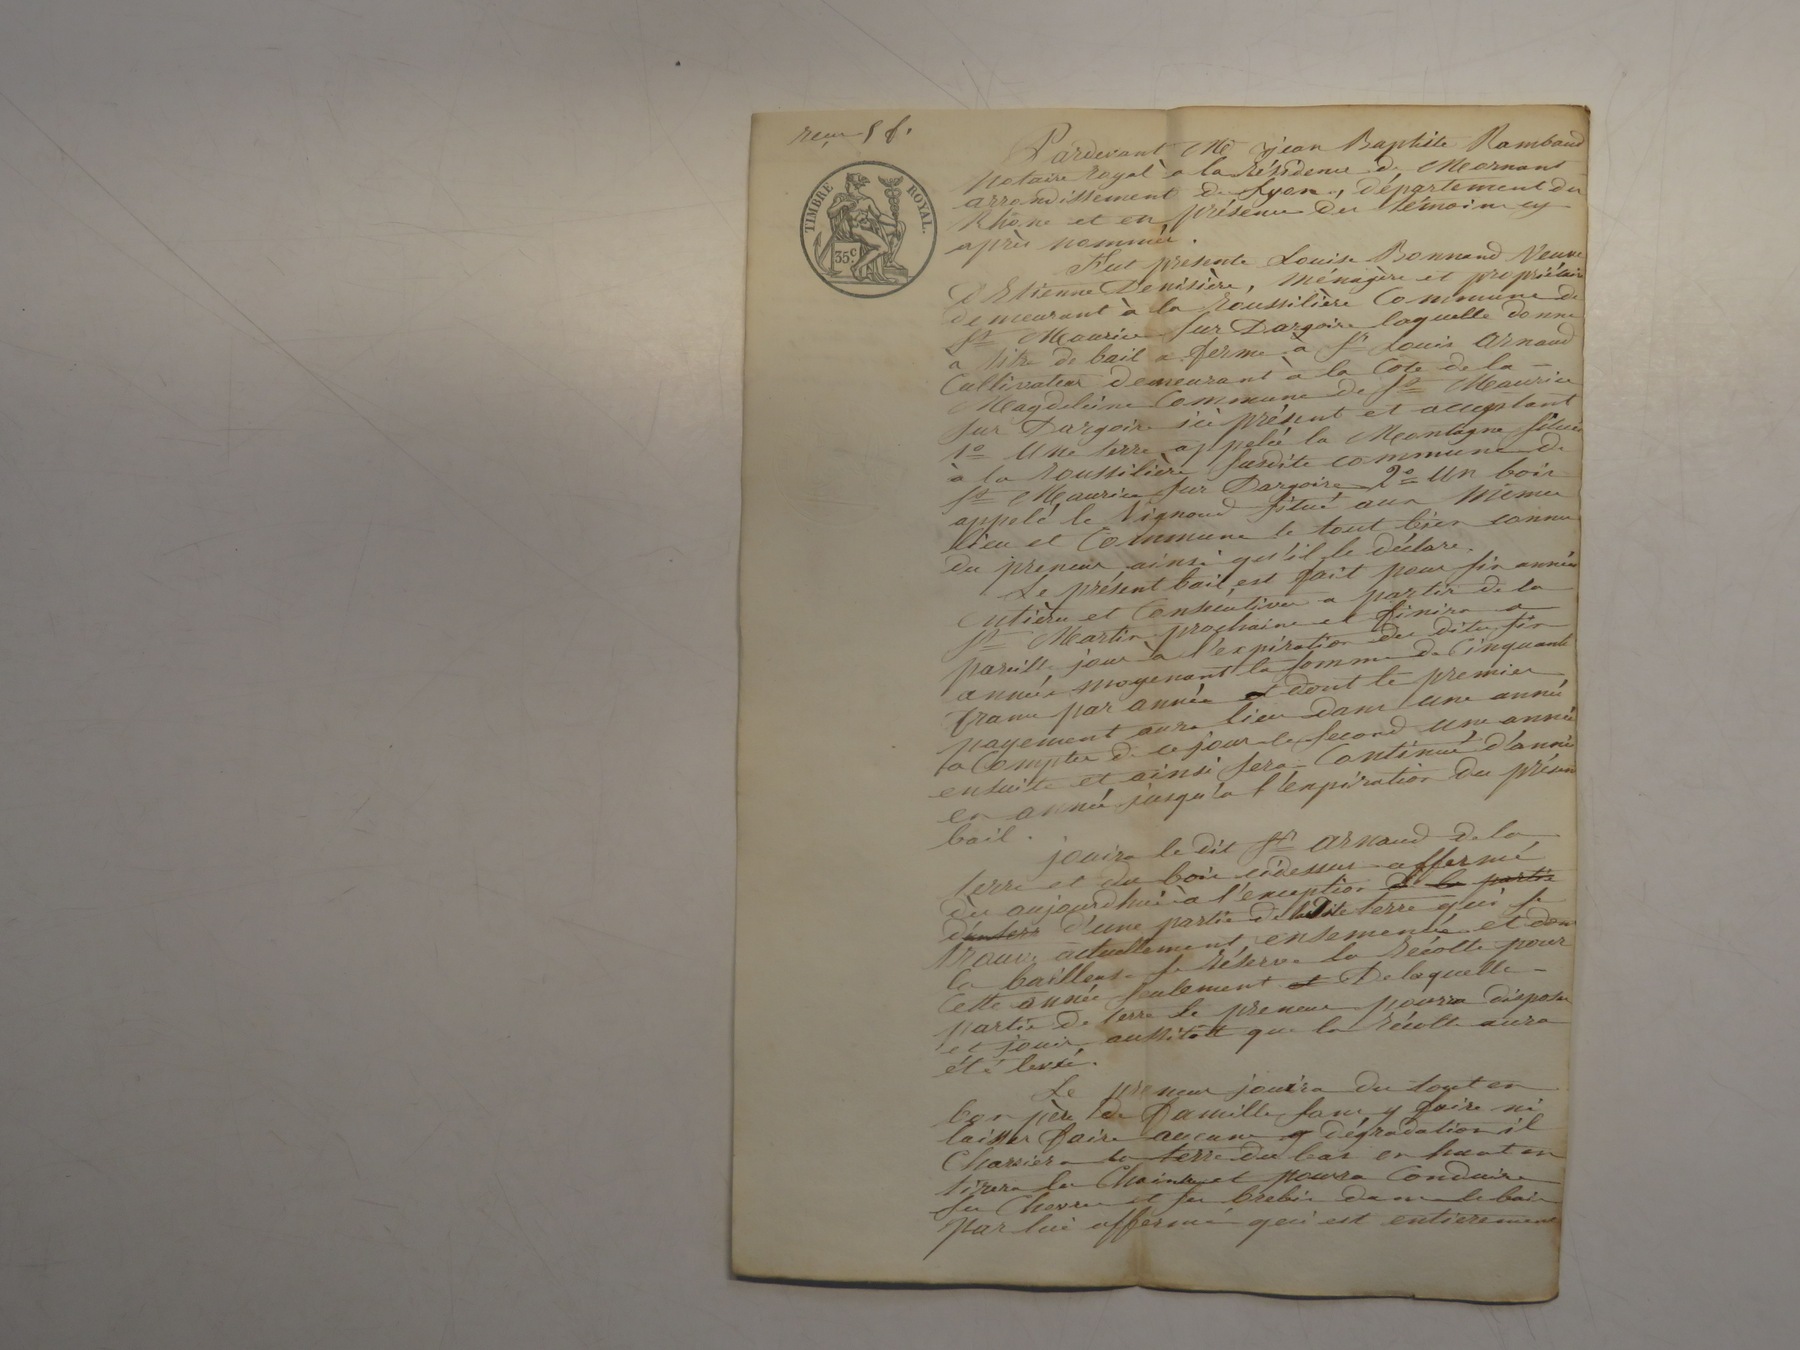 reçu 5 f.
TIMBRE ROYAL.
35c
Pardevant Me jean Baptiste Rambaud
Notaire royal à la résidence de Mornant
arrondissement de Lyon, département du
Rhône et en présence des témoins cy
après nommés.
Fut présente Louise Bonnand Veuve
d'Etienne Denisière, ménagère et propriétaire
demeurant à la roussilière Commune de
St Maurice sur Dargoire laquelle donne
a titre de bail a ferme à Sr Louis Arnaud
Cultivateur demeurant à la Cote de la
Magdeleine Commune de St Maurice
sur Dargoire ici présent et acceptant
1o Une terre appelée la Montagne située
à la roussilière susdite commune de
St Maurice sur Dargoire 2o Un bois
appelé le Vignaud situé aux mêmes
lieu et Commune le tout bien connu
du preneur ainsi qu'il le déclare.
Le présent bail est fait pour six années
entières et Consécutives a partir de la
St Martin prochaine et finira a
pareille jour à l'expiration des dites six
années moyenant la somme de Cinquante
francs par année et dont le premier
payement aura lieu dans une année
a Compter de ce jour le second une année
ensuite et ainsi sera Continué d'année
en année jusqu'a l'expiration du présent
bail.
jouira le dit Sr Arnaud de la
terre et du bois cidessus affermé
dès aujourdhui à l'exception de la partie
d'une partie de ladite terre qui se
trouve actuellement ensemencée et dont
la bailleuse se réserve la récolte pour
cette année seulement et De laquelle
partie de terre le preneur pourra disposer
et jouir aussitott que la récolte aura
été levée.
Le preneur jouira du tout en
bon père de famille sans y faire ni
laisser faire aucune dégradation il
Charriera la terre du bas en haut en
tirera les Chaintres et pourra Conduire
ses Chevres et ses brebis dans le bois
par lui affermé qui est entierement